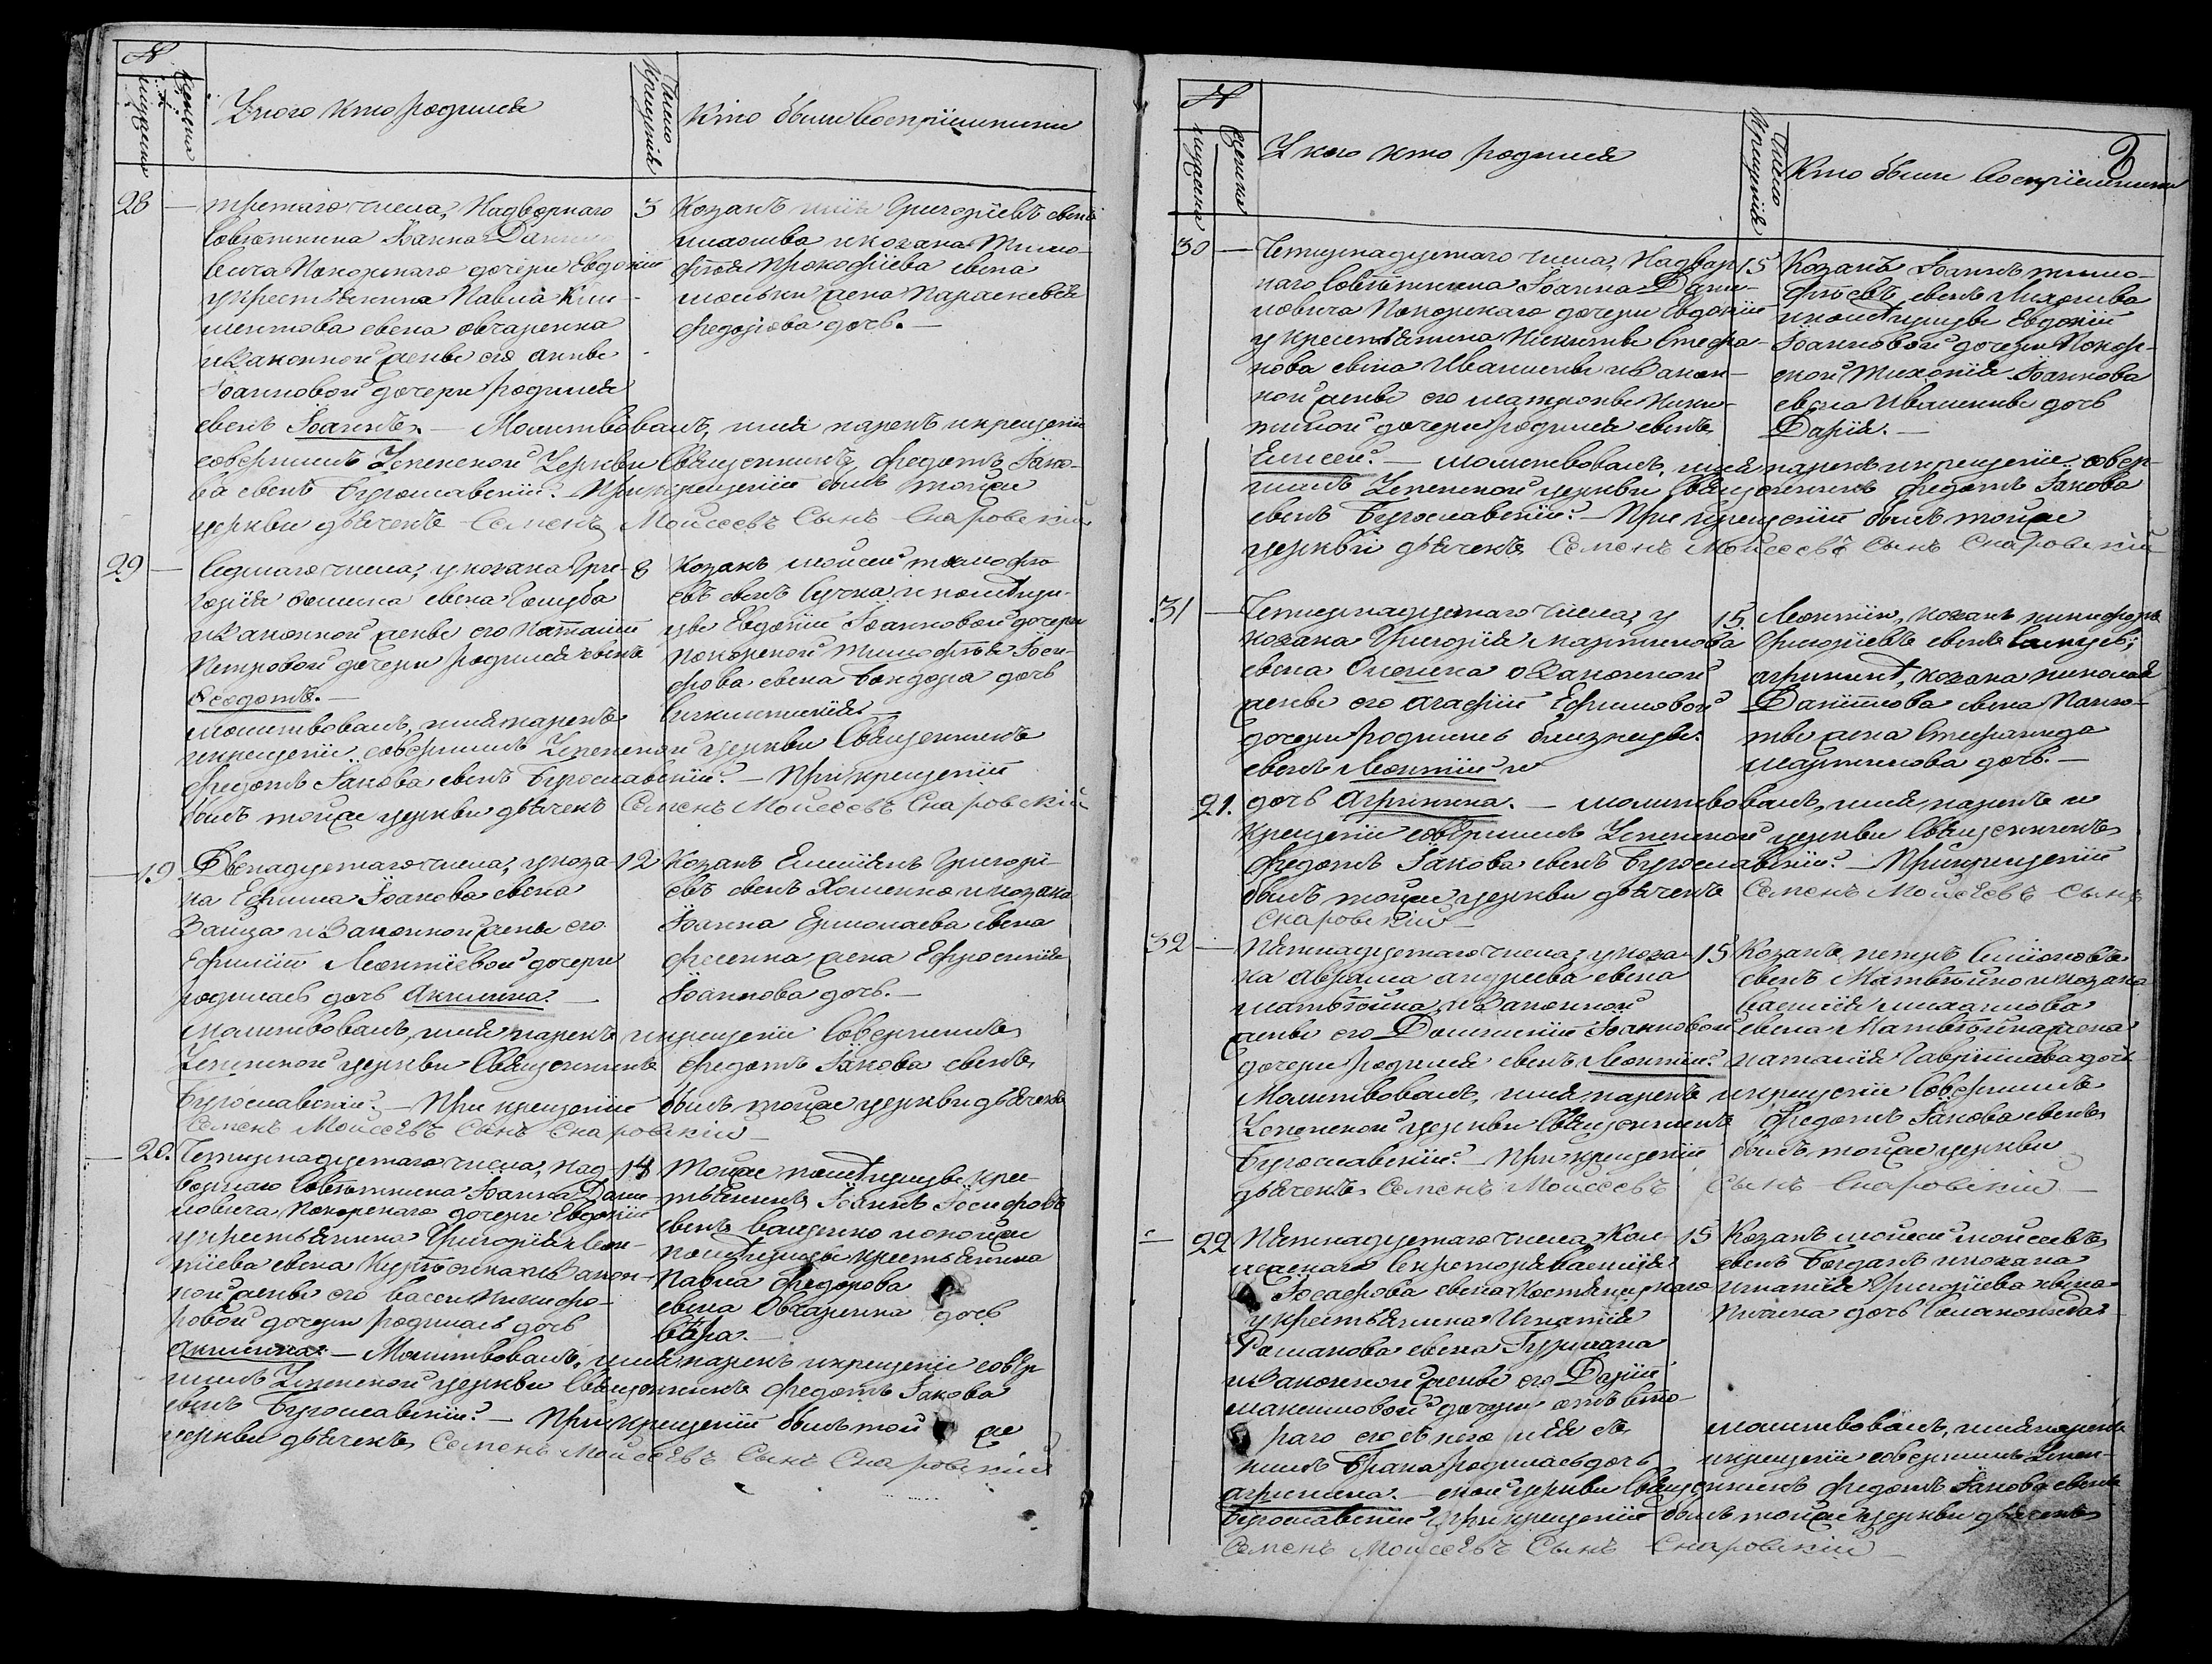 №
мужеска
женска
У кого кто родился
Число крещенія
Кто были воспріемники
28 — третяго числа, Надворнаго 3
Совѣтника Іоанна Данило
вича Покорскаго дочери Евдокіи
у крестьянина Павла Кли-
ментова сына овчаренка
и законной жены его анны
Іоанновой дочери родился
сынъ Іоаннъ. — Молитвовалъ, имя нарекъ и крещеніе
совершилъ Успенской Церкви Священникъ, Федотъ Іако-
ва сынъ Бугославскій. — При крещеніи былъ тойже
церкви дьячекъ Семенъ Моисеевъ Сынъ Снаровскій
Козакъ Григоріевъ сынъ
и козака Тимо-
фѣя Прокофіева сына
жена Параскевія
Федорова дочь. —
29 — Седмаго числа, у козака Гри- 8
горія сына
и законной жены его Наталіи
Петровой дочери родился сынъ
Феодотъ. —
молитвовалъ, имя нарекъ
и крещеніе совершилъ Успенской церкви Священникъ
Федотъ Іакова сынъ Бугославскій. — При крещеніи
былъ тойже церкви дьячекъ Семенъ Моисеевъ Снаровскій
Козакъ Моисей тимофѣ
евъ сынъ Сучка и помѣщи-
цы Евдокіи Іоанновой дочери
покорской Тимофѣя Іоси-
фова сына бондаря дочь
19 Двенадцятаго числа, у коза- 12
ка Ефима Іоанова сына
Заица и законной жены его
Ефиміи Леонтіевой дочери
родилась дочь Акилина. —
Молитвовалъ, имя нарекъ и крещеніе Совершилъ
Успенской церкви Священникъ Федотъ Іакова сынъ
Бугославскій. — При крещеніи былъ тойже церкви дьячекъ
Семенъ Моисеевъ Сынъ Снаровскій —
Козакъ Емиліянъ Григорі-
евъ сынъ Хоменко и козака
Іоанна Ермолаева сына
жена Ефросинія
Іоаннова дочь. —
20. Четырнадцятаго числа, над- 14
ворнаго Совѣтника Іоанна Дани-
ловича Покорскаго дочери Евдокіи
у крестьянина Григорія Леон-
тіева сына и закон-
ной жены его Васси Никифо-
ровой дочери родилась дочь
Акилина. — Молитвовалъ, имя нарекъ и крещеніе совер
шилъ Успенской церкви Священникъ Федотъ Іакова
сынъ Бугославскій. — При крещеніи былъ той же
церкви дьячекъ Семенъ Моисеевъ Сынъ Снаровскій
Тойже помѣщицы крес-
тьянинъ Іоаннъ Іосифовъ
сынъ Ващенко и онойже
помѣщицы крестьянина
Павла Федорова
сына Овчаренка дочь
Вѣра. —
№
мужеска
женска
У кого кто родился
Число крещенія
Кто были воспріемники
30 — Четырнадцятаго числа, Надвор 15
наго Совѣтника Іоанна Дани-
ловича Покорскаго дочери Евдокіи
у крестьянина Никиты Стефа-
нова сына Иващенка и закон-
ной жены его матроны Ники-
тиной дочери родился сынъ
Елисей. — молитвовалъ, имя нарекъ и крещеніе совер-
шилъ Успенской церкви Священникъ Федотъ Іакова
сынъ Бугославскій. — При крещеніи былъ тойже
церкви дьячекъ Семенъ Моисеевъ Сынъ Снаровскій
Козакъ Іоаннъ тимо-
фѣевъ сынъ
и помѣщицы Евдокіи
Іоанновой дочери Покор-
ской Тихонія Іоаннова
сына Иващенка дочь
Дарія. —
31 — Четырнадцятаго числа, у 15
козака Григорія мартинова
сына и законной
жены его агафіи Ефимовой
дочери родились близнецы.
сынъ Леонтій и
21. дочь Агрипина. — молитвовалъ, имя нарекъ и
крещеніе совершилъ Успенской церкви Священникъ
Федотъ Іакова сынъ Бугославскій. — При крещеніи
былъ тойже церкви дьячекъ Семенъ Моисеевъ Сынъ
Снаровскій —
Леонтію, козакъ никифоръ
Григоріевъ сынъ
агрипинѣ, козака николая
Даніилова сына
жена Стефанида
мартинова дочь. —
32 — Пятнадцятаго числа, у коза- 15
ка Авраама андреева сына
матвѣйка, и законной
жены его Домникіи Іоанновой
дочери родился сынъ Леонтій.
Молитвовалъ, имя нарекъ и крещеніе Совершилъ
Успенской церкви Священникъ Федотъ Іакова сынъ
Бугославскій. — При крещеніи былъ тойже церкви
дьячекъ Семенъ Моисеевъ Сынъ Снаровскій —
Козакъ петръ Симоновъ
сынъ Матвѣйко и козака
василія
сына Матвѣйка жена
наталія Гавріилова дочь
22 Пятнадцятаго числа, Кол- 15
лежскаго Секретаря Василія
Іосафова сына
у крестьянина Игнатія
Романова сына
и законной жены его Даріи
максимовой дочери отъ вто-
раго его съ нею
бракa родилась дочь
агрипина. —
Козакъ моисей моисеевъ
сынъ Богданъ и козака
игнатія Григоріева сына
дочь
молитвовалъ, имя нарекъ
и крещеніе совершилъ Успен-
ской церкви Священникъ Федотъ Іакова сынъ
Бугославскій При крещеніи былъ тойже церкви дьячекъ
Семенъ Моисеевъ Сынъ Снаровскій —